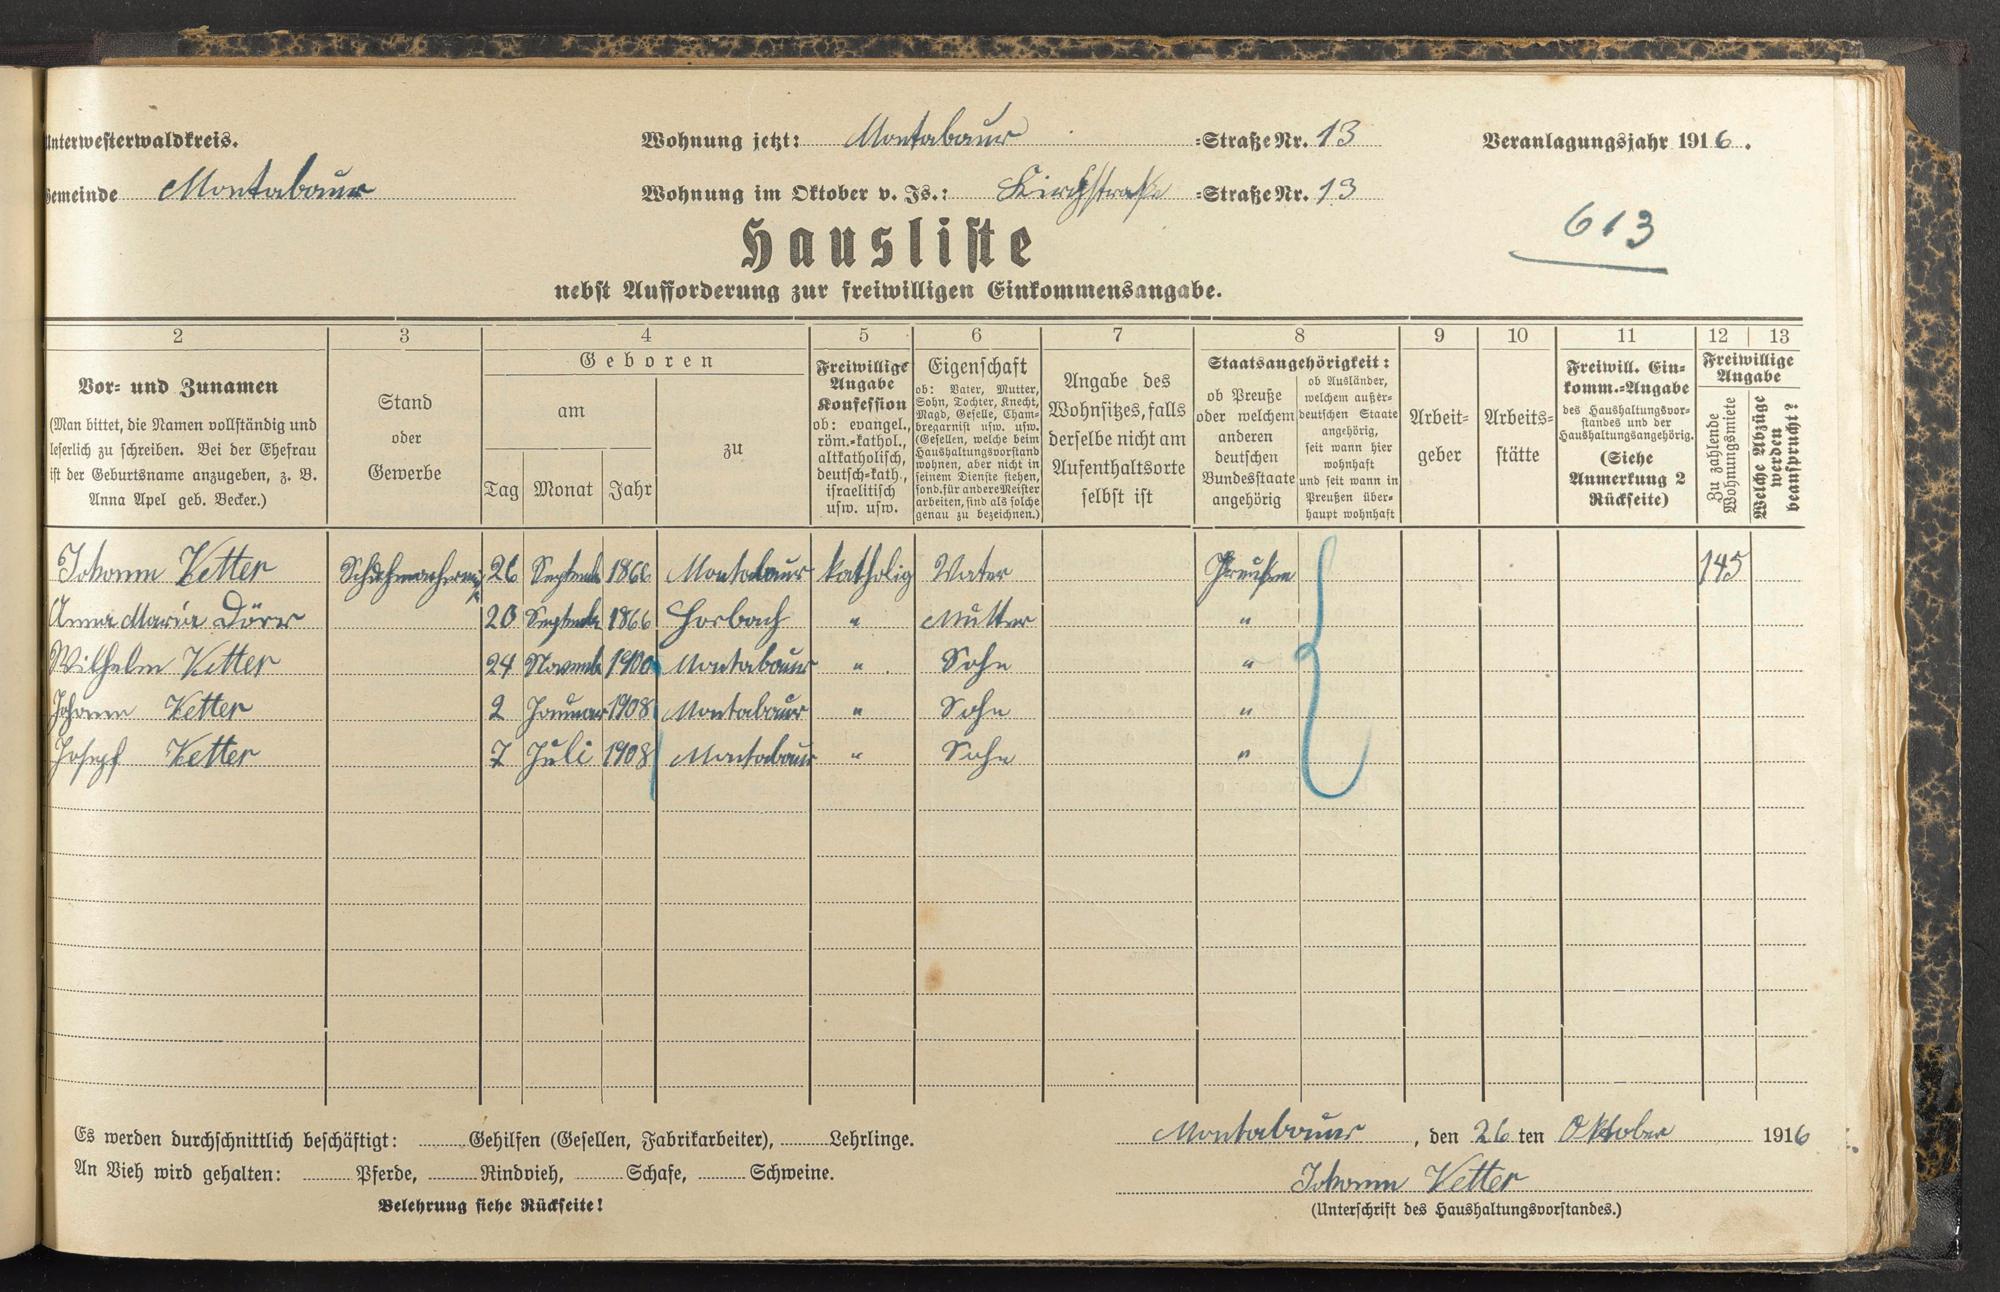 Unterwesterwaldkreis.
Wohnung jetzt: Montabaur =Straße Nr. 13
Veranlagungsjahr 1916.
Gemeinde Montabaur
Wohnung im Oktober v. Js.: Kirchstraße =Straße Nr. 13
613
Hausliste
nebst Aufforderung zur freiwilligen Einkommensangabe.
2 3 4 5 6 7 8 9 10 11 12 13
Vor= und Zunamen
(Man bittet, die Namen vollständig und
leserlich zu schreiben. Bei der Ehefrau
ist der Geburtsname anzugeben, z. B.
Anna Apel geb. Becker.)
Stand
oder
Gewerbe
Geboren
am
Tag Monat Jahr
zu
Freiwillige
Angabe
Konfession
ob: evangel.,
röm.=kathol.,
altkatholisch,
deutsch=kath.,
israelitisch
usw. usw.
Eigenschaft
ob: Vater, Mutter,
Sohn, Tochter, Knecht,
Magd, Geselle, Cham=
bregarnist usw. usw.
(Gesellen, welche beim
Haushaltungsvorstand
wohnen, aber nicht in
seinem Dienste stehen,
sond. für andere Meister
arbeiten, sind als solche
genau zu bezeichnen.)
Angabe des
Wohnsitzes, falls
derselbe nicht am
Aufenthaltsorte
selbst ist
Staatsangehörigkeit:
ob Preuße
oder welchem
anderen
deutschen
Bundesstaate
angehörig
ob Ausländer,
welchem außer=
deutschen Staate
angehörig,
seit wann hier
wohnhaft
und seit wann in
Preußen über=
haupt wohnhaft
Arbeit=
geber
Arbeits=
stätte
Freiwill. Ein=
komm.=Angabe
des Haushaltungsvor=
standes und der
Haushaltungsangehörig.
(Siehe
Anmerkung 2
Rückseite)
Freiwillige
Angabe
Zu zahlende
Wohnungsmiete
Welche Abzüge
werden
beansprucht?
Johann Vetter 26 September 1866 Montabaur katholig Vater Preußen 145
Anna Maria Dörr 20 September 1866 Horbach " Mutter "
Wilhelm Vetter 24 Novemb 1900 Montabaur " Sohn "
Johann Vetter 2 Januar 1908 Montabaur " Sohn "
Josepf Vetter 7 Juli 1908 Montabaur " Sohn "
Es werden durchschnittlich beschäftigt: Gehilfen (Gesellen, Fabrikarbeiter), Lehrlinge.
An Vieh wird gehalten: Pferde, Rindvieh, Schafe, Schweine.
Belehrung siehe Rückseite!
Montabaur, den 26ten Oktober 1916
Johann Vetter
(Unterschrift des Haushaltungsvorstandes.)